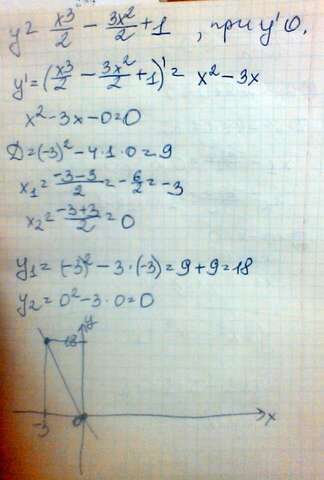 y = x³/2 - 3x²/2 + 1 , при y' 0.
y' = (x³/2 - 3x²/2 + 1)' = x² - 3x
x² - 3x - 0 = 0
D = (-3)² - 4·1·0 = 9
x₁ = -3-3/2 = -6/2 = -3
x₂ = -3+3/2 = 0
y₁ = (-3)² - 3·(-3) = 9 + 9 = 18
y₂ = 0² - 3·0 = 0
y
18
-3 0 x